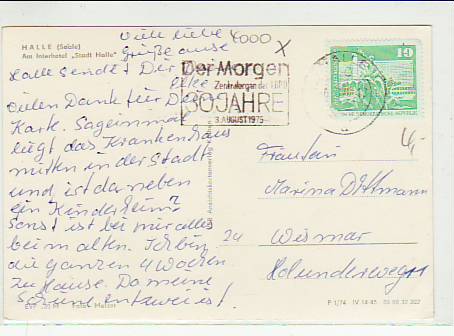 HALLE (Saale)
Am Interhotel „Stadt Halle"
4000 X
Viele liebe
Grüße aus
Halle sendet Dir
Elke
Vielen Dank für Die
Karte. Sag einmal
liegt das Krankenhaus
mitten in der Stadt
und ist daneben
ein Kinderheim?
Sonst ist bei mir alles
beim alten. Ich bin
die ganzen 4 Wochen
zu Hause. Da meine
entzwei ist.
Der Morgen
Zentralorgan der LDPD
30 JAHRE
3. AUGUST 1975
10
DEUTSCHE DEMOKRATISCHE REPUBLIK
4,-
Fräulein
Marina Dittmann
24 Wismar
Holunderweg 11
Foto
P 1/74 IV-14-45